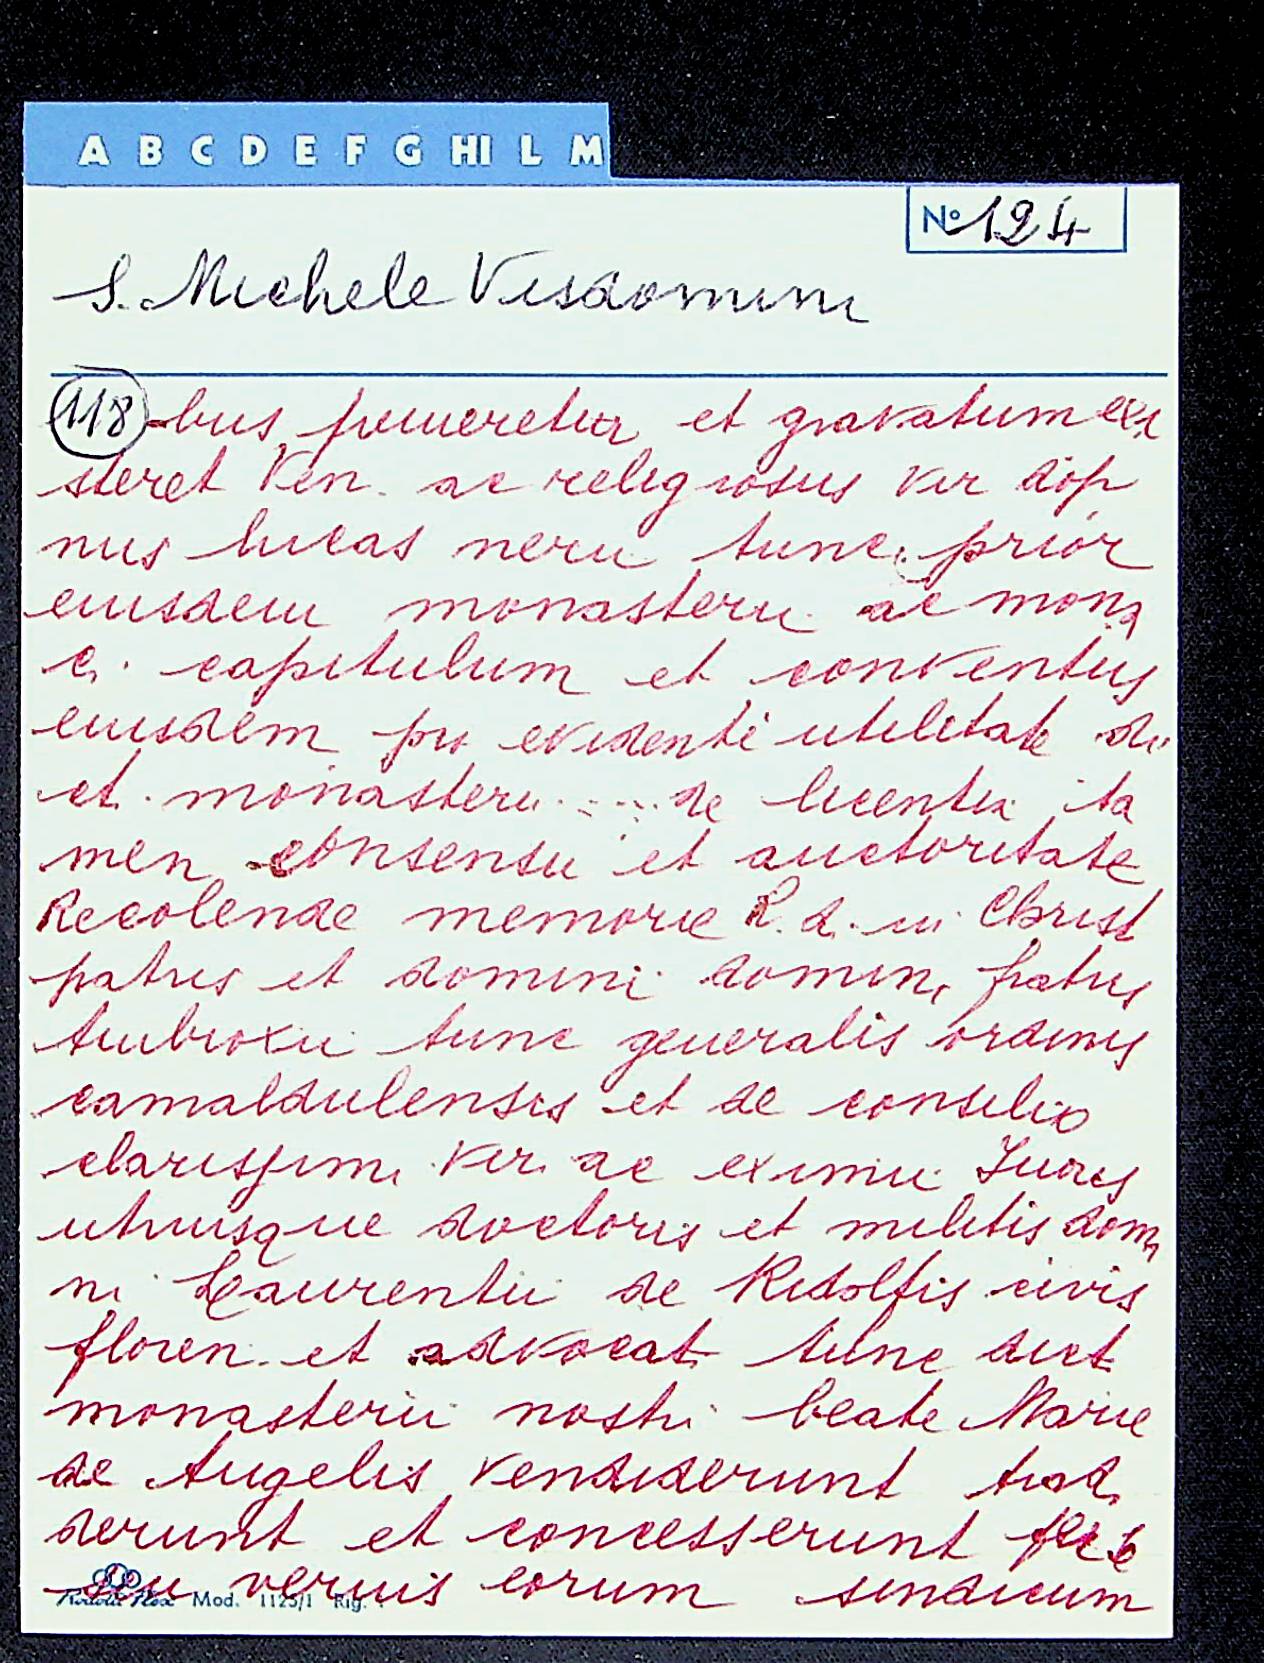 A B C D E F G HI L M
N° 124
S. Michele Visdomini
118 -bus premeretur et gravatum exi
steret Ven. ac religiosus vir dop
nus lucas nerii tunc prior
eiusdem monasterii ac mona
ci capitulum et conventus
eiusdem pro evidenti utilitate di
et monasterii .... de licentia ta
men consensu et auctoritate
Recolende memorie R. d. in Christ
patris et domini domini fratris
Ambroxii tunc generalis ordinis
camaldulensis et de consilio
clarissimi viri ac eximii Juris
utriusque doctoris et militis domi
ni Laurentii de Ridolfis civis
floren. et advocat. tunc dict
monasterii nostri beate Marie
de Angelis vendiderunt trad
derunt et concesserunt
verius eorum sindicum
Mod. 1125/1 Rig.